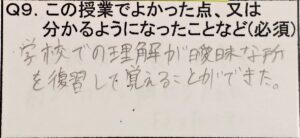 Q9. この授業でよかった点、又は
分かるようになったことなど(必須)
学校での理解が曖昧な所
を復習して覚えることができた。